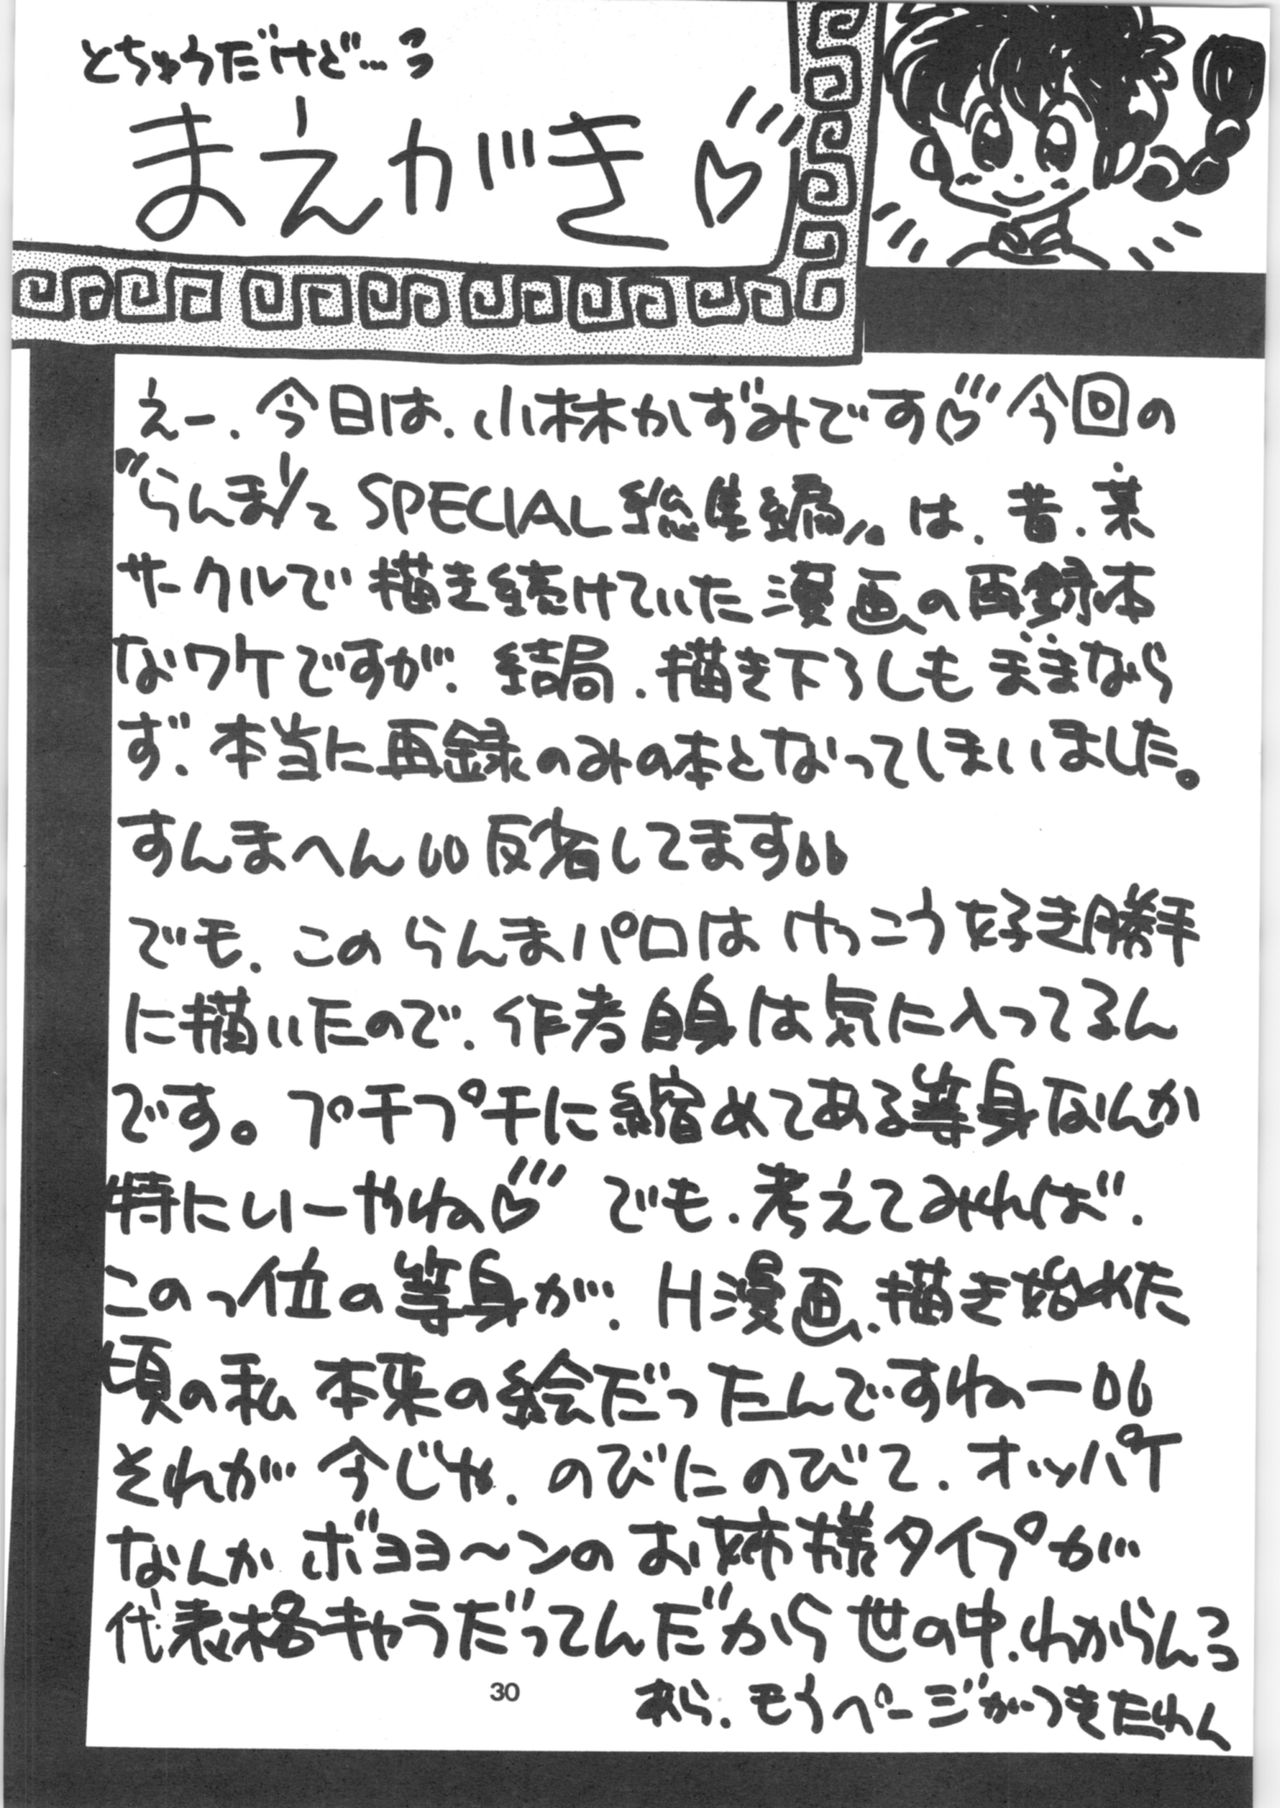 とちゅうだけど…
まえがき♡
えー、今日は、小林かずみです♡今回の
"らんま1/2 SPECIAL 総集編"は、昔、某
サークルで描き続けていた漫画の再録本
なワケですが、結局、描き下ろしもままなら
ず、本当に再録のみの本となってしまいました。
すんまへん 反省してます
でも、このらんまパロはけっこう好き勝手
に描いたので、作者自身は気に入ってるん
です。プチプチに縮めてある等身なんか
特にいーやね♡ でも、考えてみれば、
このっ位の等身が、H漫画、描き始めた
頃の私本来の絵だったんですねー
それが今じゃ、のびにのびて、オッパイ
なんかボヨヨ〜ンのお姉様タイプが
代表格キャラだってんだから世の中、わからん
あら、もうページがつきたわん
30